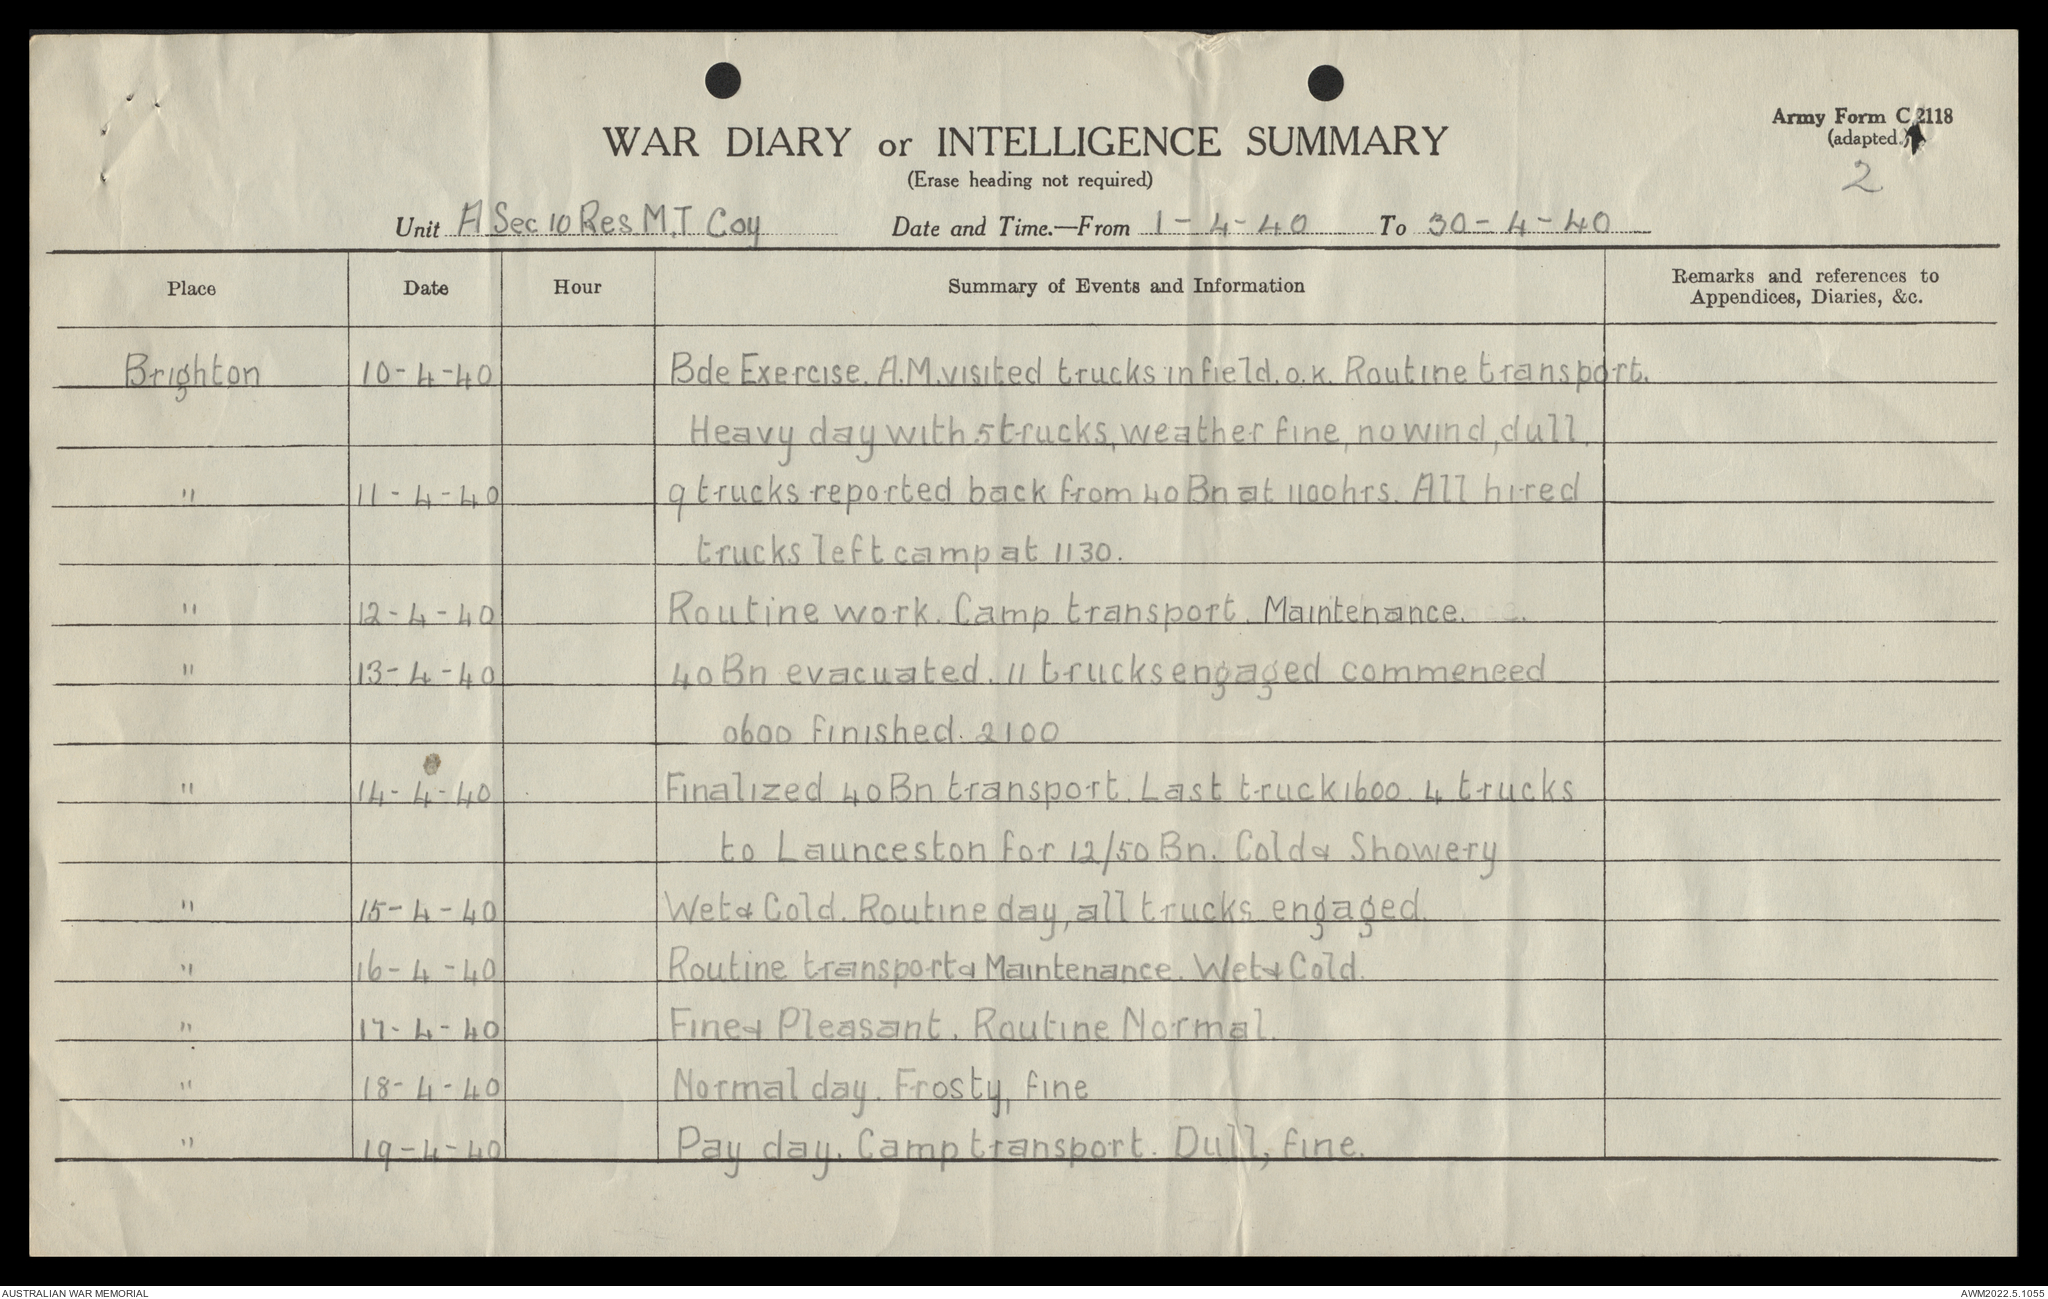 Army Form C.2118
(adapted.)
2
WAR DIARY or INTELLIGENCE SUMMARY
(Erase heading not required)
Unit A Sec 10 Res M.T Coy Date and Time.—From 1-4-40 To 30-4-40
Place Date Hour Summary of Events and Information Remarks and references to
Appendices, Diaries, &c.
Brighton 10-4-40 Bde Exercise. A.M. visited trucks in field. o.k. Routine transport.
Heavy day with 5 trucks, weather fine, no wind, dull.
" 11-4-40 9 trucks reported back from 40 Bn at 1100 hrs. All hired
trucks left camp at 1130.
" 12-4-40 Routine work. Camp transport. Maintenance.
" 13-4-40 40 Bn evacuated. 11 trucks engaged commenced
0600 finished. 2100
" 14-4-40 Finalized 40 Bn transport. Last truck 1600. 4 trucks
to Launceston for 12/50 Bn. Cold & Showery
" 15-4-40 Wet & Cold. Routine day, all trucks engaged.
" 16-4-40 Routine transport & Maintenance. Wet & Cold.
" 17-4-40 Fine & Pleasant. Routine Normal.
" 18-4-40 Normal day. Frosty, fine
" 19-4-40 Pay day. Camp transport. Dull, fine.
AUSTRALIAN WAR MEMORIAL AWM2022.5.1055